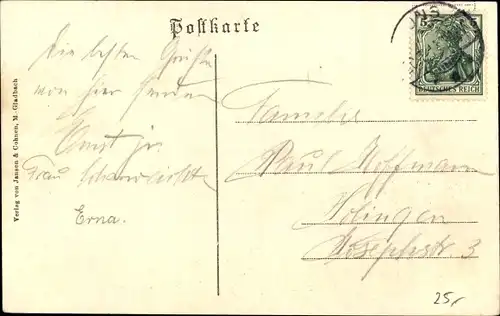 Postkarte
5
5
DEUTSCHES REICH
Die besten Grüße
von hier senden
Ernst jr.
Frau
Erna.
Familie
Paul Hoffmann
Solingen
Josephstr. 3
Verlag von Jansen & Cohnen, M.-Gladbach
25,-